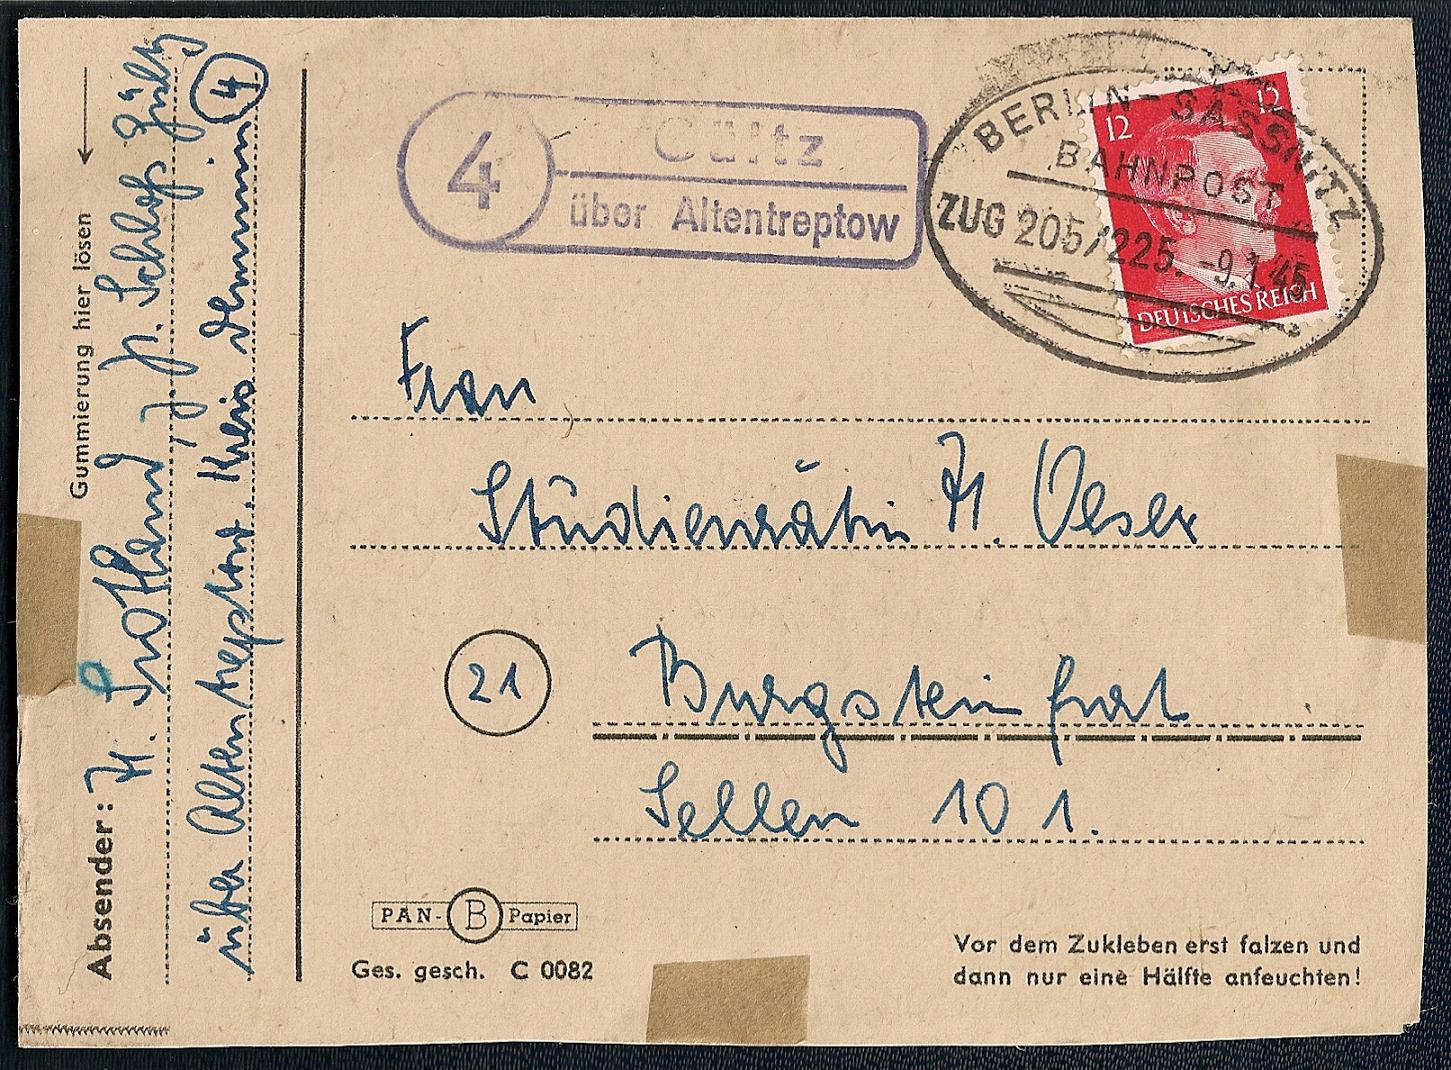 4
Gültz
über Altentreptow
BERLIN-SASSNITZ
BAHNPOST
ZUG 205/225. -9.1.45
12 12
DEUTSCHES REICH
Frau
Studienrätin H. Oeser
21
Burgsteinfurt
Sellen 101.
PAN- B Papier
Ges. gesch. C 0082
Vor dem Zukleben erst falzen und
dann nur eine Hälfte anfeuchten!
Gummierung hier lösen
Absender: H. Schloß Gültz
über Altentreptow. Kreis Demmin 4